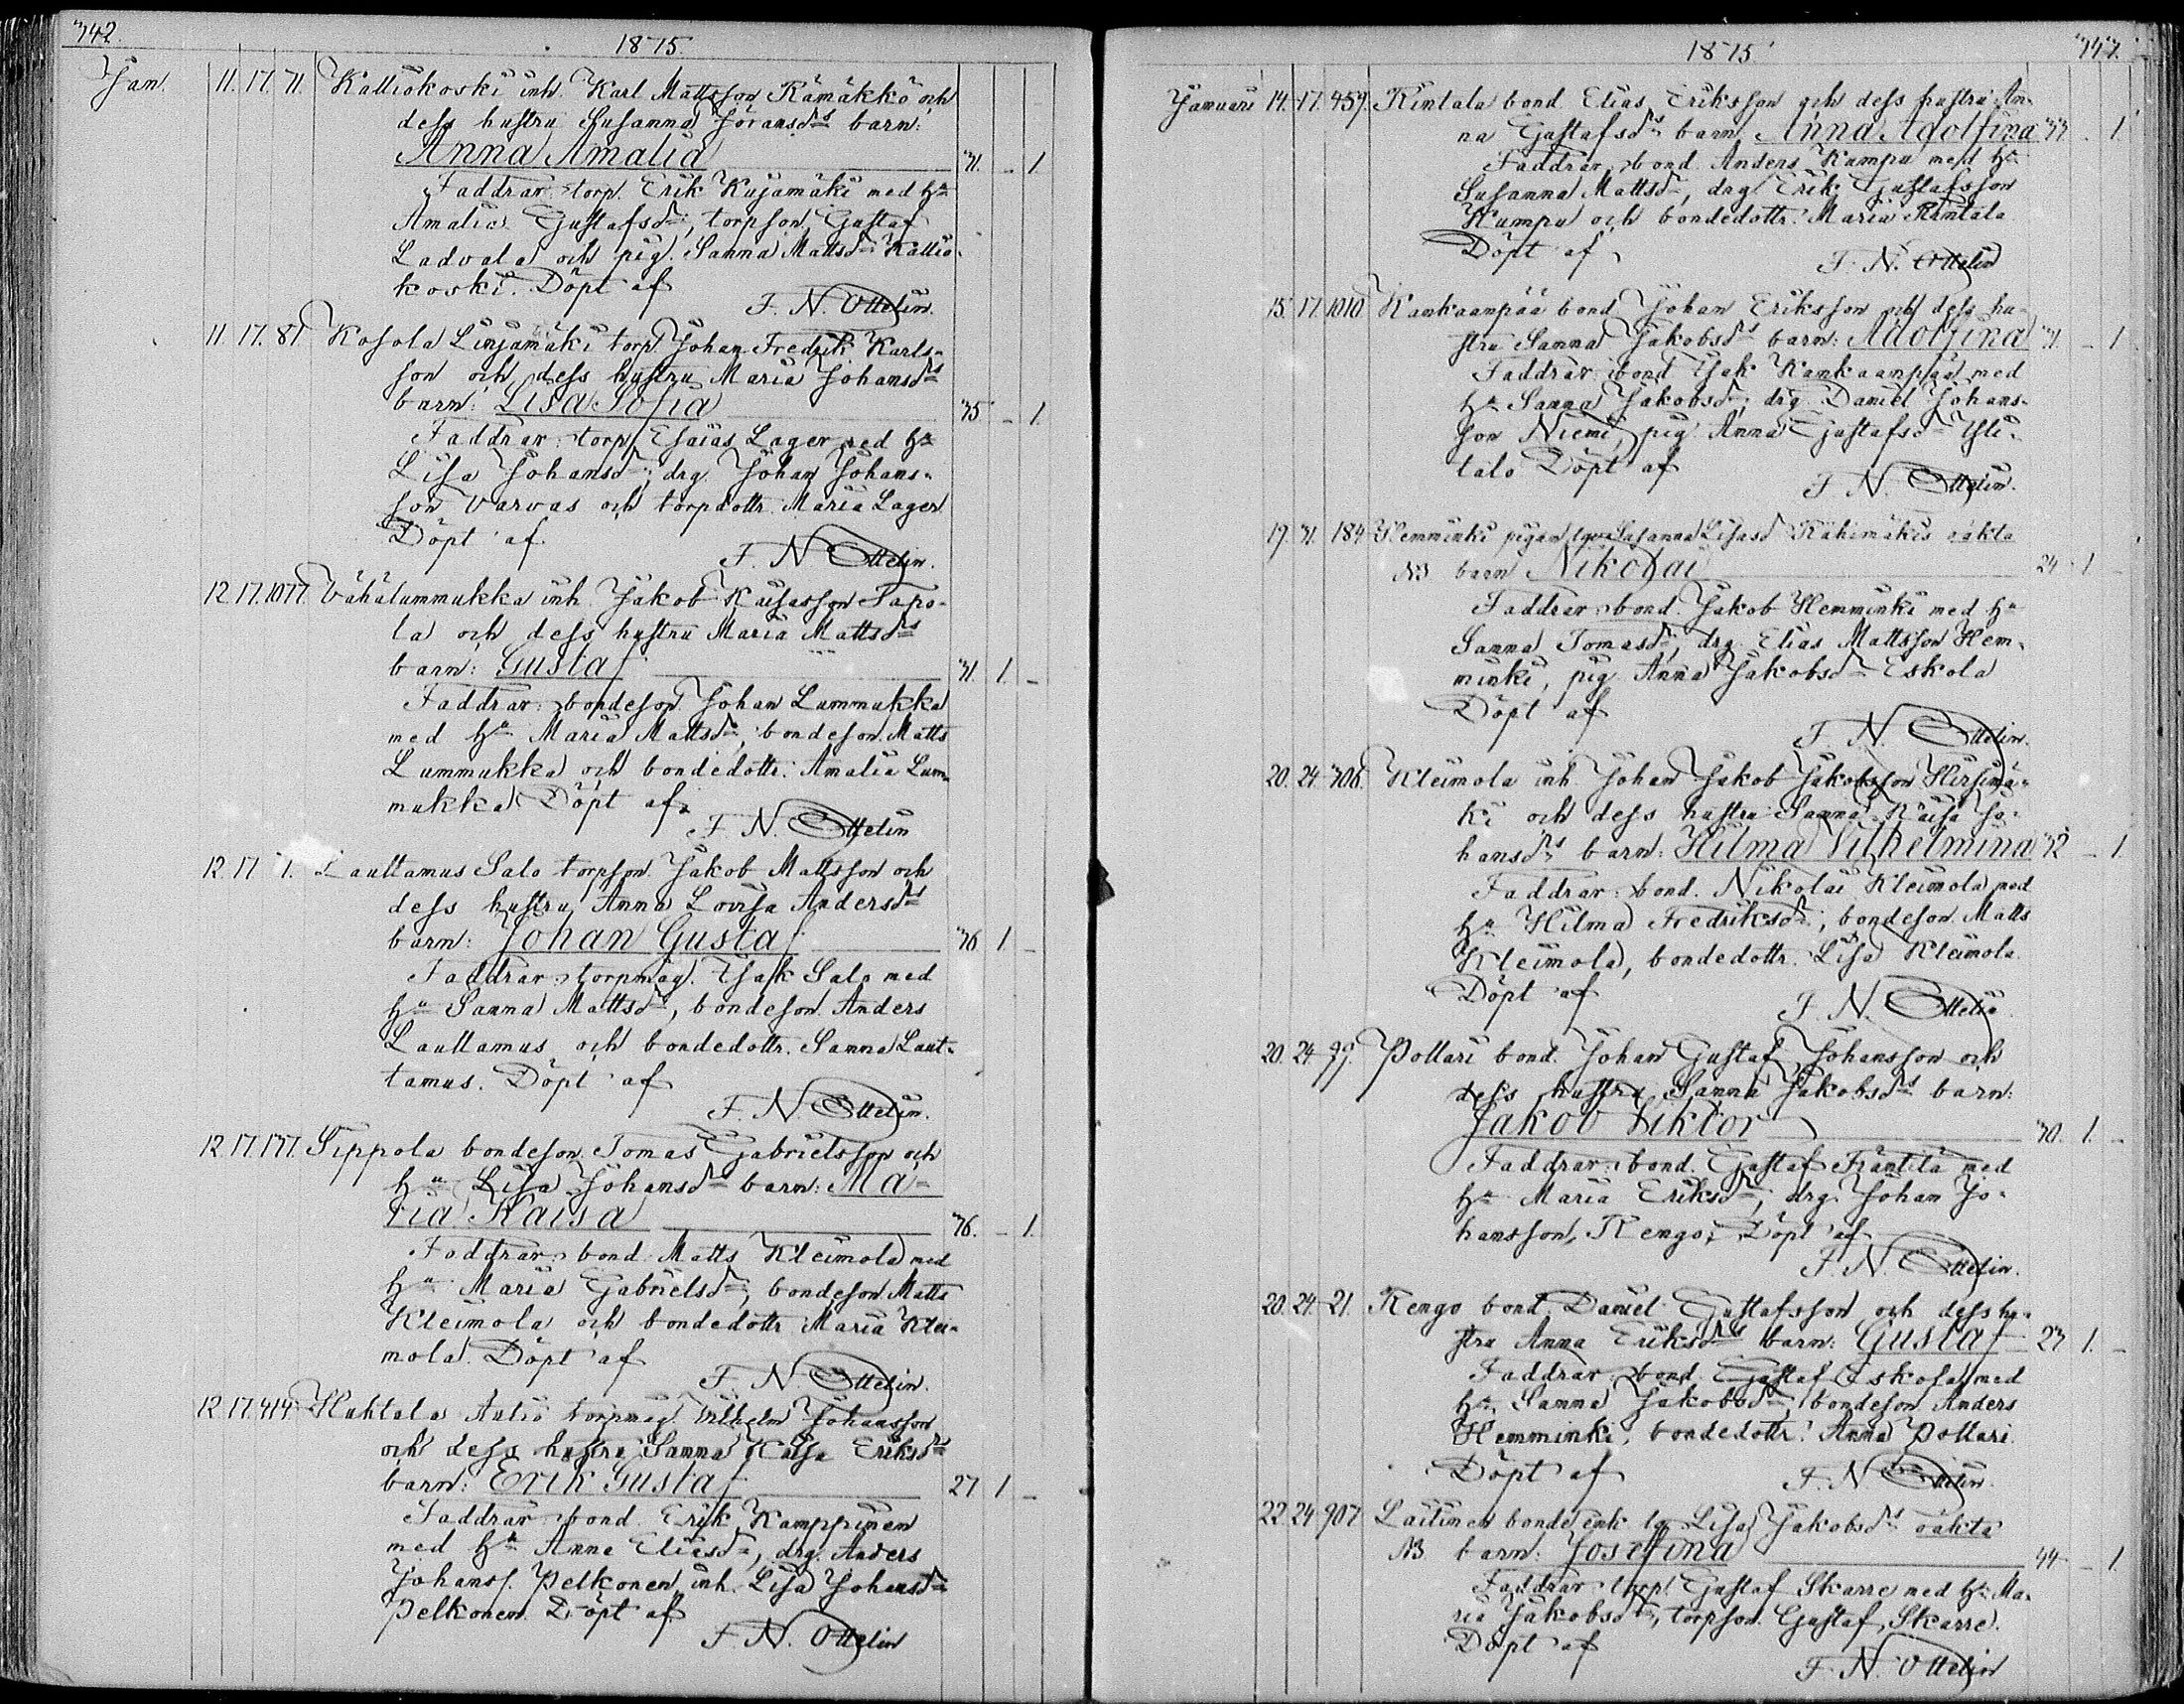 342.
1875.
Jan. 11. 17. 71. Kalliokoski inh. Karl Mattsson Rämäkkö och
dess hustru Susanna Göransdrs barn:
Anna Amalia 31. – 1.
Faddrar: torp. Erik Kujamäki med hu
Amalia Gustafsdr, torpson Gustaf
Ladvala och pig. Sanna Mattsdr Kallio-
koski. Döpt af
F. N. Ottelin.
11. 17. 87 Kosola Linjamäki torp. Johan Fredrik Karls-
son och dess hustru Maria Johansdrs
barn: Lisa Sofia 35 – 1.
Faddrar: torp. Esaias Lager med hu
Lisa Johansdr; drg. Johan Johans-
son Varvas och torpdottr. Maria Lager
Döpt af.
F. N. Ottelin.
12. 17. 1077. Vähälummukka inh. Jakob Kaisasson Tapo-
la och dess hustru Maria Mattsdrs
barn: Gustaf 31. 1. –
Faddrar: bondeson Johan Lummukka
med hu Maria Mattsdr, bondeson Matts
Lummukka och bondedottr. Amalia Lum-
mukka Döpt af
F. N. Ottelin
12. 17 1. Lauttamus Salo torpson Jakob Mattsson och
dess hustru Anna Lovisa Andersdrs
barn: Johan Gustaf 36 1. –
Faddrar: torpmåg. Isak Salo med
hu Sanna Mattsdr, bondeson Anders
Lauttamus och bondedottr. Sanna Laut-
tamus. Döpt af
F. N. Ottelin.
12. 17. 137. Sippola bondeson Tomas Gabrielsson och
hu Lisa Johansdrs barn: Ma-
ria Kaisa 36. – 1.
Faddrar: bond. Matts Kleimola med
hu Maria Gabrielsdr, bondeson Matts
Kleimola och bondedottr Maria Klei-
mola. Döpt af
F. N. Ottelin.
12. 17. 414. Huhtala Autio torpmåg. Vilhelm Johansson
och dess hustru Sanna Kaisa Eriksdrs
barn: Erik Gustaf 27 1 –
Faddrar: bond. Erik Kamppinen
med hu Anna Eliasdr, drg. Anders
Johanss. Pelkonen, inh. Lisa Johansdr
Pelkonen. Döpt af
F. N. Ottelin
1875
343.
Januari 14. 17. 459. Rintala bond. Elias Eriksson och dess hustru An-
na Gustafsdrs barn Anna Adolfina 33 – 1.
Faddrar: bond. Anders Kumpu med hu
Susanna Mattsdr, drg. Erik Gustafsson
Kumpu och bondedottr. Maria Rintala
Döpt af
F. N. Ottelin
15. 17. 1010. Kankaanpää bond. Johan Eriksson och dess hu-
stru Sanna Jakobsdrs barn: Adolfina 31. – 1
Faddrar: bond. Isak Kankaanpää med
hu Sanna Jakobsdr, drg. Daniel Johans-
son Niemi, pig. Anna Gustafsdr Yli-
talo Döpt af
F. N. Ottelin.
19. 31. 184 Hemminki pigan Susanna Lisasdr Kähimäkis oäkta
NB. barn Nikolai 24 1 –
Faddrar: bond. Jakob Hemminki med hu
Sanna Tomasdr, drg. Elias Mattsson Hem-
minki, pig. Anna Jakobsdr Eskola
Döpt af
F. N. Ottelin.
20. 24. 308. Kleimola inh. Johan Jakob Jakobsson Hirsimä-
ki och dess hustru Sanna Kaisa Jo-
hansdrs barn: Hilma Vilhelmina 32 – 1.
Faddrar: bond. Nikolai Kleimola med
hu Hilma Fredriksdr, bondeson Matts
Kleimola, bondedottr. Lisa Kleimola.
Döpt af
F. N. Ottelin
20. 24. 99. Pollari bond. Johan Gustaf Johansson och
dess hustru Sanna Jakobsdrs barn:
Jakob Viktor 30. 1. –
Faddrar: bond. Gustaf Fräntilä med
hu Maria Eriksdr, drg. Johan Jo-
hansson, Rengo, Döpt af
F. N. Ottelin.
20. 24. 21. Rengo bond. Daniel Gustafsson och dess hu-
stru Anna Eriksdrs barn: Gustaf 23 1. –
Faddrar: bond. Gustaf Eskola med
hu Sanna Jakobsdr, bondeson Anders
Hemminki, bondedottr. Anna Pollari.
Döpt af F. N. Ottelin.
22. 24 907 Laitinen bonde enk. Lisa Jakobsdrs oäkta
NB. barn: Josefina 44 – 1.
Faddrar: torp. Gustaf Skarre med hu Ma-
ria Jakobsdr, torpson Gustaf Skarre.
Döpt af
F. N. Ottelin